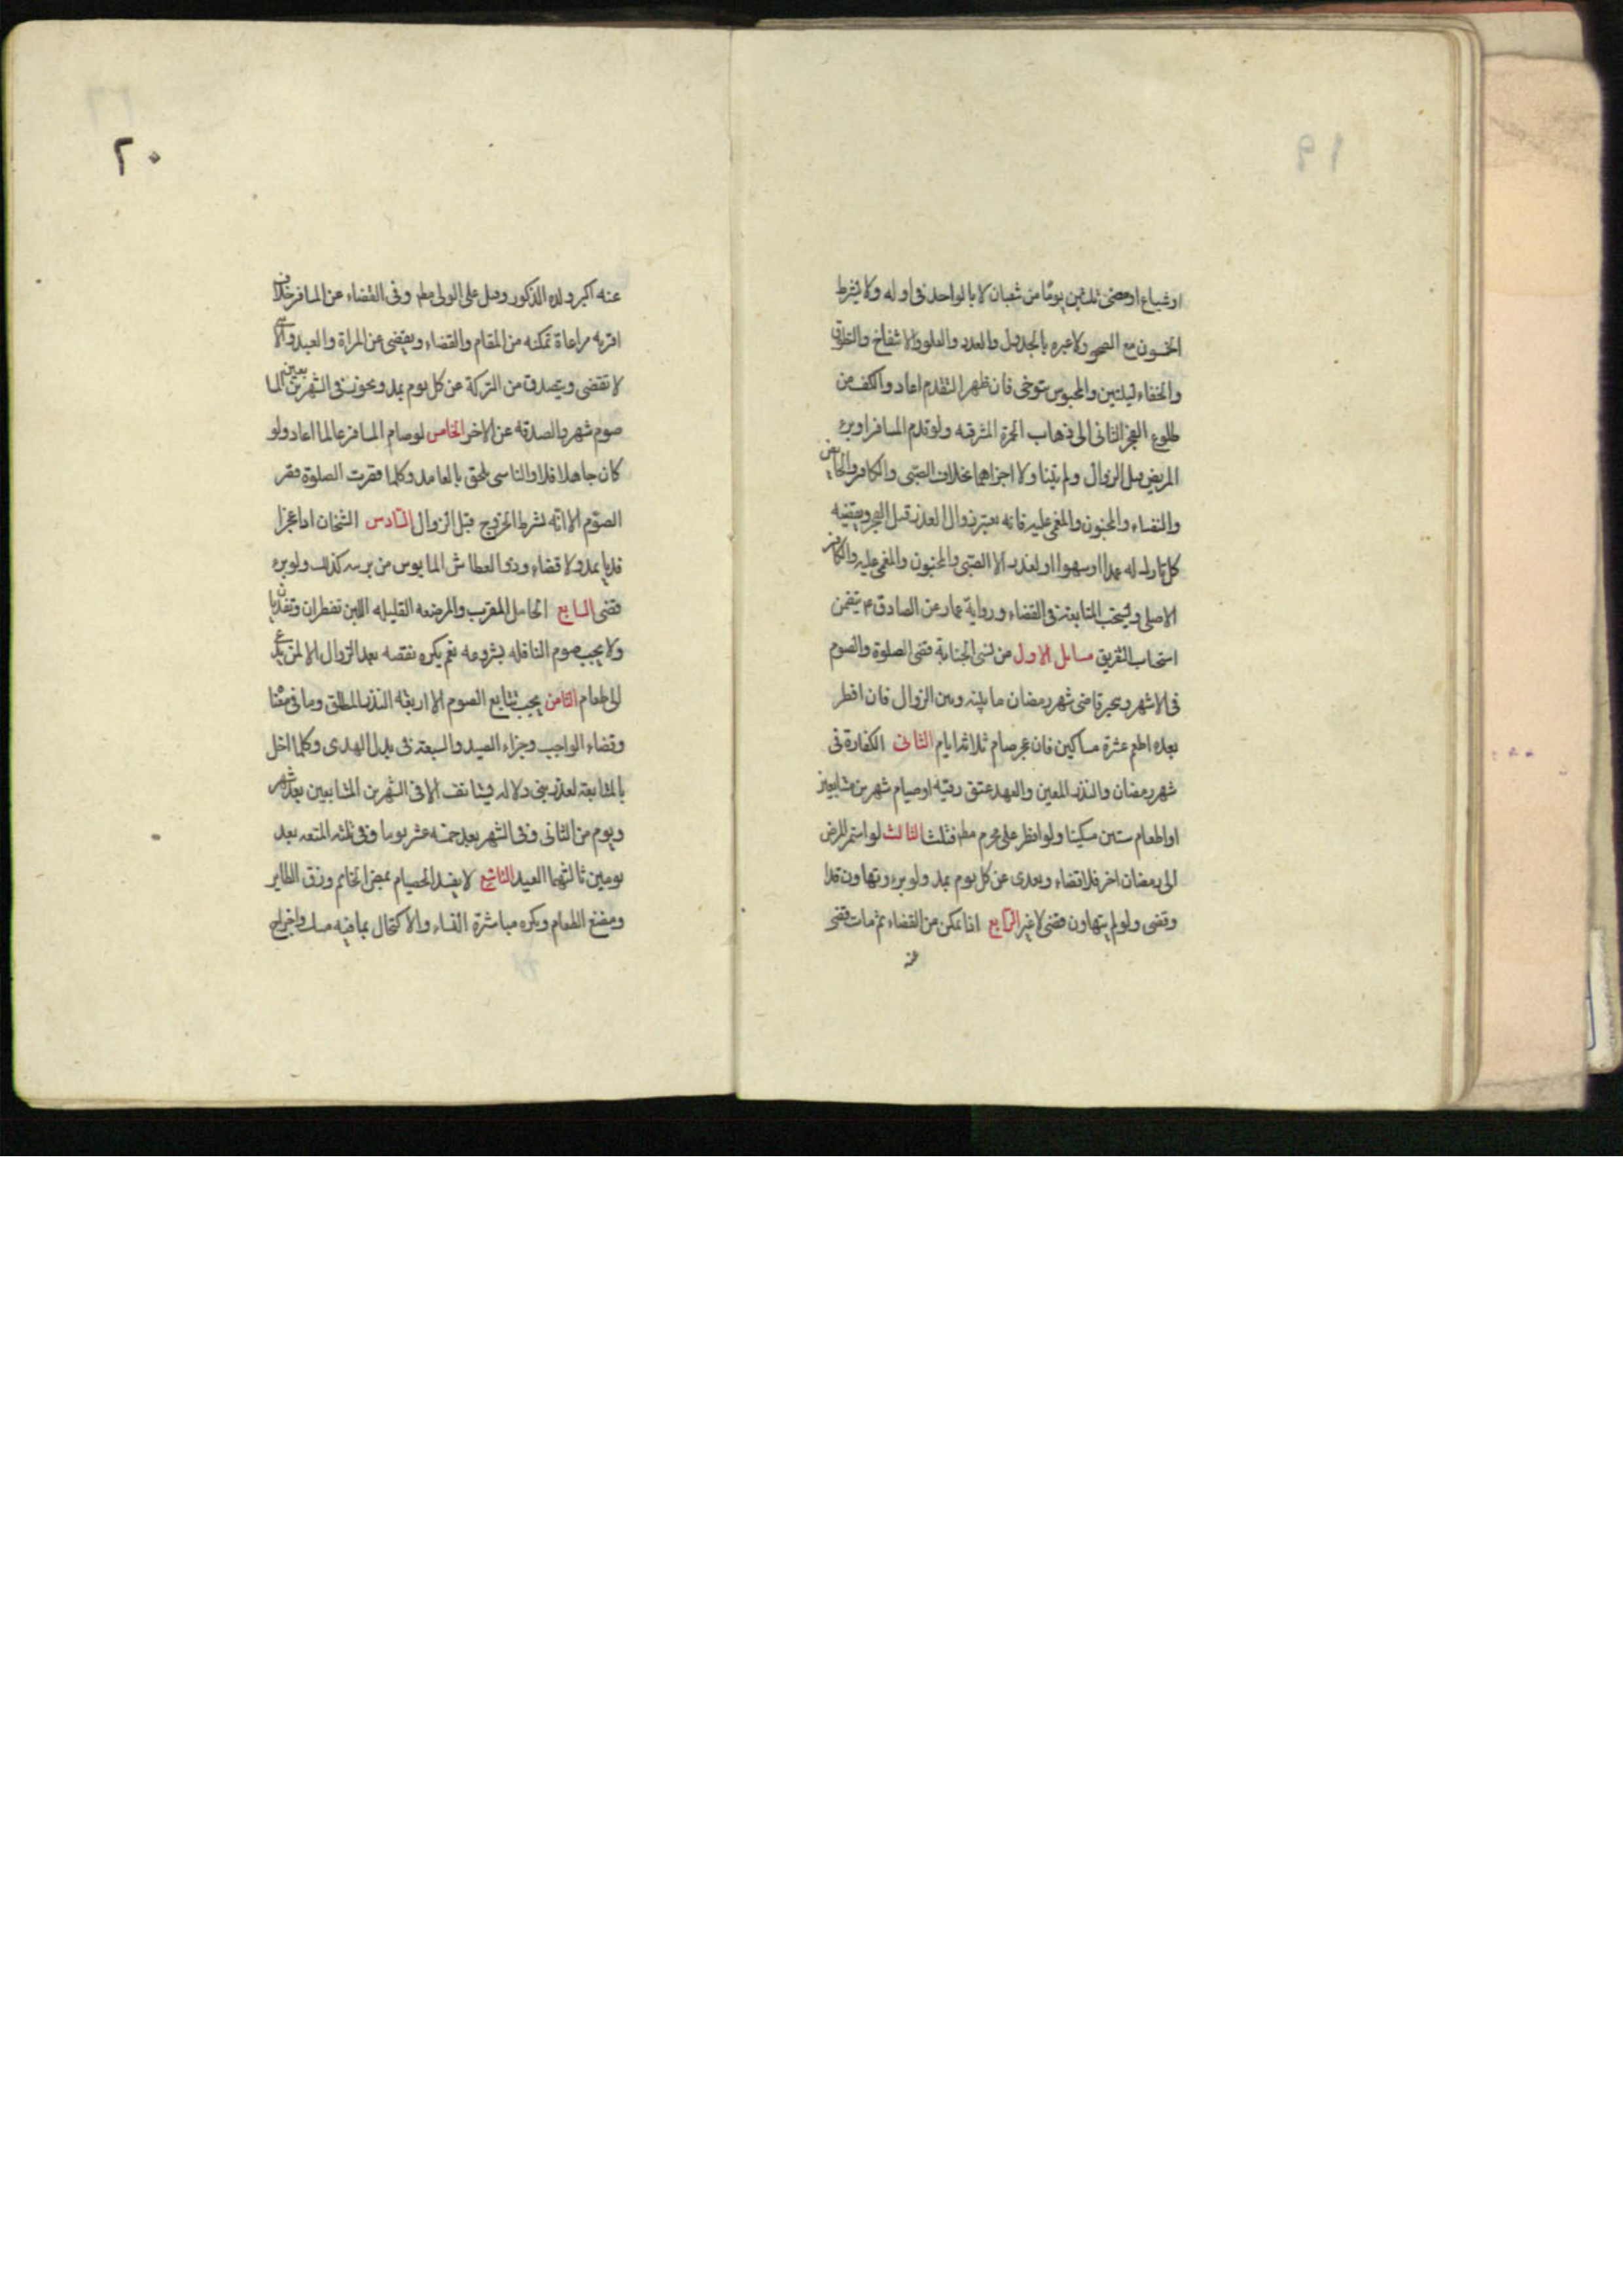 اوشياع اومضى ثلثين يومًا من شعبان لا بالواحد فى اوله ولا يشرط
الخسون مع الصحو ولا عبره بالجدول والعدد والعلو والانتفاخ والتطوق
والخفاء ليلتين والمحبوس يتوخى فان ظهر التقدم اعاد والكف من
طلوع الفجر الثانى الى ذهاب الحمرة المشرقيه ولو قدم المسافر او برء
المريض قبل الزوال ولم يتناولا اجزاهما بخلاف الصّبى والكافر والحايض
والنفساء والمجنون والمغمى عليه فانه يعتبر زوال العذر قبل الفجر ويقضيه
كل تارك له عمدا اوسهوا اولعذر الا الصّبى والمجنون والمغمى عليه والكافر
الاصلى ويستحب المتابعة فى القضاء ورواية عمار عن الصادق ع يتضمن
استحباب التفريق مسايل الاول من نسى الجنابة قضى الصلوة والصوم
فى الاشهر ويخير قاضى شهر رمضان ما بينه وبين الزوال فان افطر
بعده اطعم عشرة مساكين فان عجز صام ثلاثة ايام الثانى الكفارة فى
شهر رمضان والنذر المعين والعهد عتق رقبه اوصيام شهرين متتابعين
او اطعام ستين مسكينا ولو افطر على محرم مط فثلث الثالث لو استمر المرض
الى رمضان اخر فلا قضاء ويفدى عن كل يوم بمد ولو برء وتهاون فدا
وقضى ولو لم يتهاون قضى لا غير الرّابع اذا تمكن من القضاء ثم مات قضى
عنه
٢٠
عنه اكبر ولده الذكور وقيل على الولى مطم وفى القضاء عن المسافر خلاف
اقربه مراعاة تمكنه من المقام والقضاء ويقضى عن المراة والعبد والانثى
لا تقضى ويتصدق من التركة عن كل يوم بمد ويجوز فى الشهرين المتتابعين
صوم شهر والصدقه عن الاخر الخامس لو صام المسافر عالما اعاد ولو
كان جاهلا فلا والناسى يلحق بالعامد وكلما قصرت الصلوة قصر
الصّوم الا انّه يشرط الخروج قبل الزوال السّادس الشخان اذا عجزا
فديا بمد ولا قضاء وذو العطاش المايوس من برئه كذلك ولو برء
قضى السابع الحامل المقرب والمرضعه القليله اللبن تفطران وتفديان
ولا يجب صوم النافله بشروعه نعم يكره نقضه بعد الزوال الا لمن يدعى
الى طعام الثامن يجب تتابع الصوم الا اربعة النذر المطلق وما فى معناه
وقضاء الواجب وجزاء الصيد والسبعة فى بدل الهدى وكلما اخل
بالمتابعة لعذر بنى ولا له فيستانف الا فى الشهرين المتتابعين بعد شهر
ويوم من الثانى وفى الشهر بعد خمسه عشر يوما وفى ثلثه المتعه بعد
يومين ثالثهما العيد التاسع لا يفسد الصيام بمص الخاتم وزق الطاير
ومضغ الطعام ويكره مباشرة النساء والاكتحال بما فيه مسك واخراج